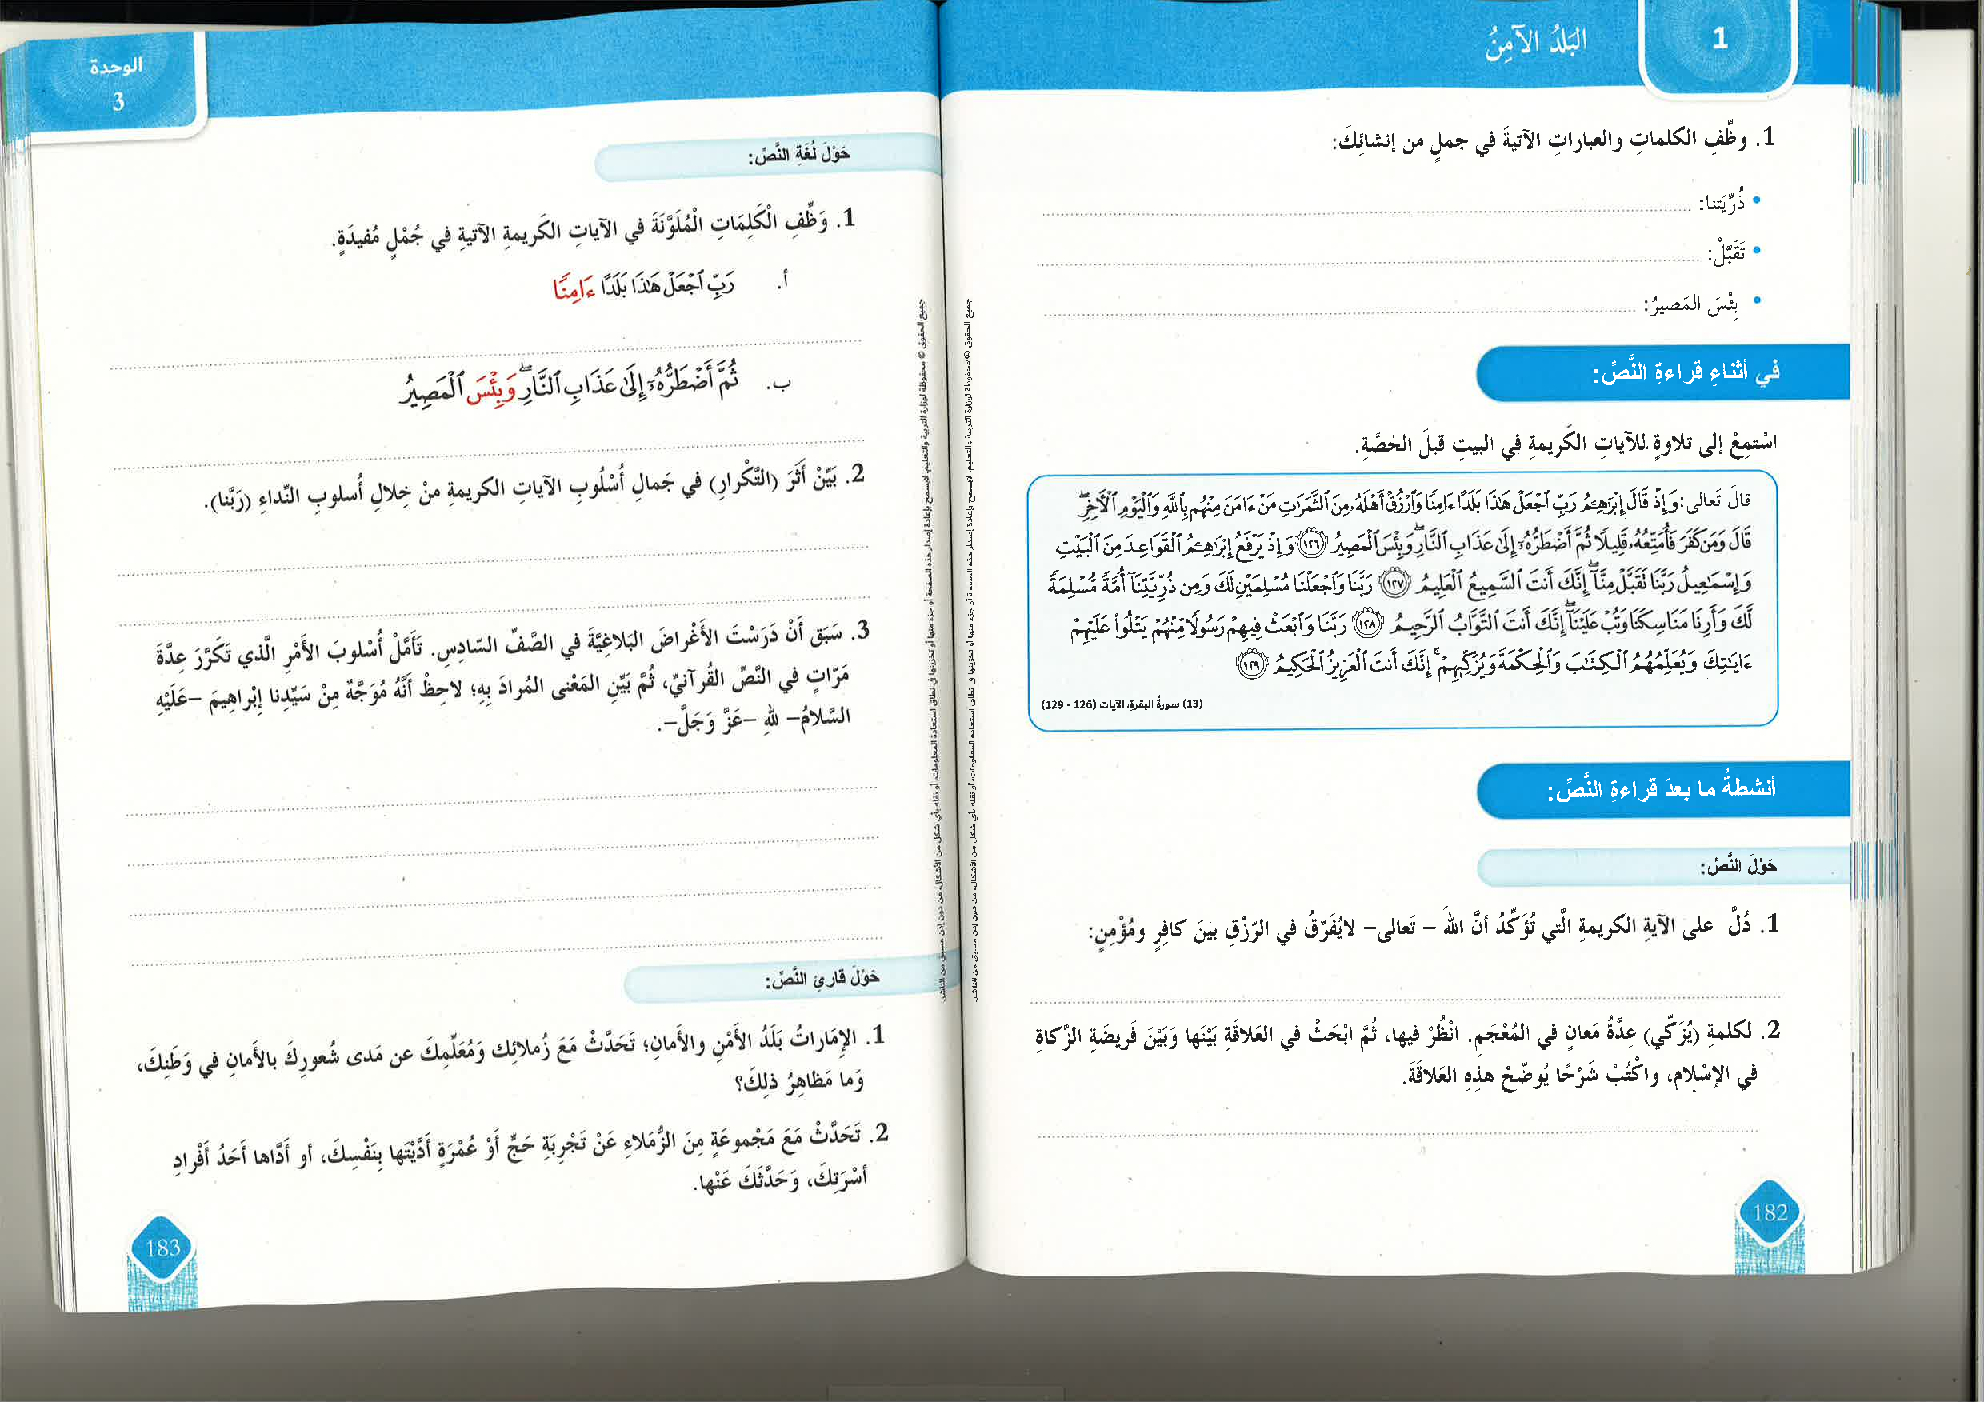 1
البَلَدُ الآمِنُ
1. وظِّفِ الكلماتِ والعباراتِ الآتيةَ في جملٍ من إنشائِكَ:
• ذُرِّيَتنا:
• تَقَبَّلْ:
• بِئْسَ المَصيرُ:
في أثناءِ قراءةِ النَّصِّ:
اسْتمِعْ إلى تلاوةٍ للآياتِ الكَريمةِ في البيتِ قبلَ الحَصَّةِ.
قالَ تَعالى: وَإِذْ قَالَ إِبْرَٰهِـۧمُ رَبِّ ٱجْعَلْ هَـٰذَا بَلَدًا ءَامِنًا وَٱرْزُقْ أَهْلَهُۥ مِنَ ٱلثَّمَرَٰتِ مَنْ ءَامَنَ مِنْهُم بِٱللَّهِ وَٱلْيَوْمِ ٱلْـَٔاخِرِۖ
قَالَ وَمَن كَفَرَ فَأُمَتِّعُهُۥ قَلِيلًا ثُمَّ أَضْطَرُّهُۥٓ إِلَىٰ عَذَابِ ٱلنَّارِۖ وَبِئْسَ ٱلْمَصِيرُ ﴿١٢٦﴾ وَإِذْ يَرْفَعُ إِبْرَٰهِـۧمُ ٱلْقَوَاعِدَ مِنَ ٱلْبَيْتِ
وَإِسْمَـٰعِيلُ رَبَّنَا تَقَبَّلْ مِنَّآۖ إِنَّكَ أَنتَ ٱلسَّمِيعُ ٱلْعَلِيمُ ﴿١٢٧﴾ رَبَّنَا وَٱجْعَلْنَا مُسْلِمَيْنِ لَكَ وَمِن ذُرِّيَّتِنَآ أُمَّةً مُّسْلِمَةً
لَّكَ وَأَرِنَا مَنَاسِكَنَا وَتُبْ عَلَيْنَآۖ إِنَّكَ أَنتَ ٱلتَّوَّابُ ٱلرَّحِيمُ ﴿١٢٨﴾ رَبَّنَا وَٱبْعَثْ فِيهِمْ رَسُولًا مِّنْهُمْ يَتْلُوا۟ عَلَيْهِمْ
ءَايَـٰتِكَ وَيُعَلِّمُهُمُ ٱلْكِتَـٰبَ وَٱلْحِكْمَةَ وَيُزَكِّيهِمْۚ إِنَّكَ أَنتَ ٱلْعَزِيزُ ٱلْحَكِيمُ ﴿١٢٩﴾
(13) سورةُ البقرةِ، الآيات (126 - 129)
أنشطةُ ما بعدَ قراءةِ النَّصِّ:
حَوْلَ النَّصِّ:
1. دُلَّ على الآيةِ الكريمةِ الَّتي تُؤَكِّدُ أنَّ اللهَ – تَعالى– لايُفَرّقُ في الرّزْقِ بينَ كافِرٍ ومُؤْمِنٍ:
2. لكلمةِ (يُزَكّي) عِدَّةُ مَعانٍ في المُعْجَمِ. انْظُرْ فيها، ثُمَّ ابْحَثْ في العَلاقَةِ بَيْنَها وَبَيْنَ فَريضَةِ الزَّكاةِ
في الإسْلامِ، واكْتُبْ شَرْحًا يُوضّحْ هذِهِ العَلاقَةَ.
182
الوحدة
3
حَوْلَ لُغَةِ النَّصِّ:
1. وَظِّفِ الْكَلِمَاتِ الْمُلَوَّنَةَ في الآياتِ الكَريمةِ الآتيةِ في جُمْلٍ مُفيدَةٍ.
أ. رَبِّ ٱجْعَلْ هَـٰذَا بَلَدًا ءَامِنًا
ب. ثُمَّ أَضْطَرُّهُۥٓ إِلَىٰ عَذَابِ ٱلنَّارِۖ وَبِئْسَ ٱلْمَصِيرُ
2. بَيِّنْ أَثَرَ (التَّكْرارِ) في جَمالِ أُسْلُوبِ الآياتِ الكريمةِ منْ خِلالِ أُسلوبِ النّداءِ (رَبَّنا).
3. سَبَق أَنْ دَرَسْتَ الأَغْراضَ البَلاغِيَّةَ في الصَّفّ السّادِسِ. تَأمَّلْ أُسْلوبَ الأَمْرِ الَّذي تَكَرَّرَ عِدَّةَ
مَرّاتٍ في النَّصِّ القُرآنيّ، ثُمَّ بَيّنِ المَعْنى المُرادَ بِهِ؛ لاحِظْ أَنَّهُ مُوَجَّهٌ مِنْ سَيِّدِنا إبْراهيمَ –عَلَيْهِ
السَّلامُ– للهِ –عَزَّ وَجَلَّ–.
حَوْلَ قارِئِ النَّصِّ:
1. الإمَاراتُ بَلَدُ الأَمْنِ والأَمانِ؛ تَحَدَّثْ مَعَ زُملائِك وَمُعَلِّمِكَ عن مَدى شُعورِكَ بالأَمانِ في وَطَنِكَ،
وَما مَظاهِرُ ذلِكَ؟
2. تَحَدَّثْ مَعَ مَجْموعَةٍ مِنَ الزُّمَلاءِ عَنْ تَجْرِبَةِ حَجٍّ أَوْ عُمْرَةٍ أَدَّيْتَها بِنَفْسِكَ، أو أَدَّاها أَحَدُ أَفْرادِ
أسْرَتِكَ، وَحَدَّثَكَ عَنْها.
183